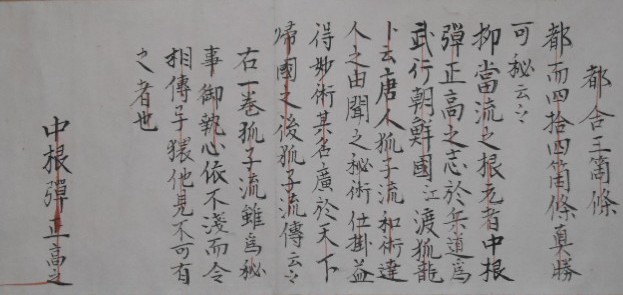 都合三箇條
都而四拾四箇條真勝
可秘云々
抑當流之根元者中根
彈正高之志於柔道為
武行朝鮮國江渡狐龍
卜云唐人狐子流和術達
人之由聞之秘術仕掛益
得妙術某名廣於天下
帰國之後狐子流傳云々
右一巻狐子流雖為秘
事御執心依不淺而令
相傳手猥他見不可有
之者也
中根彈正高之